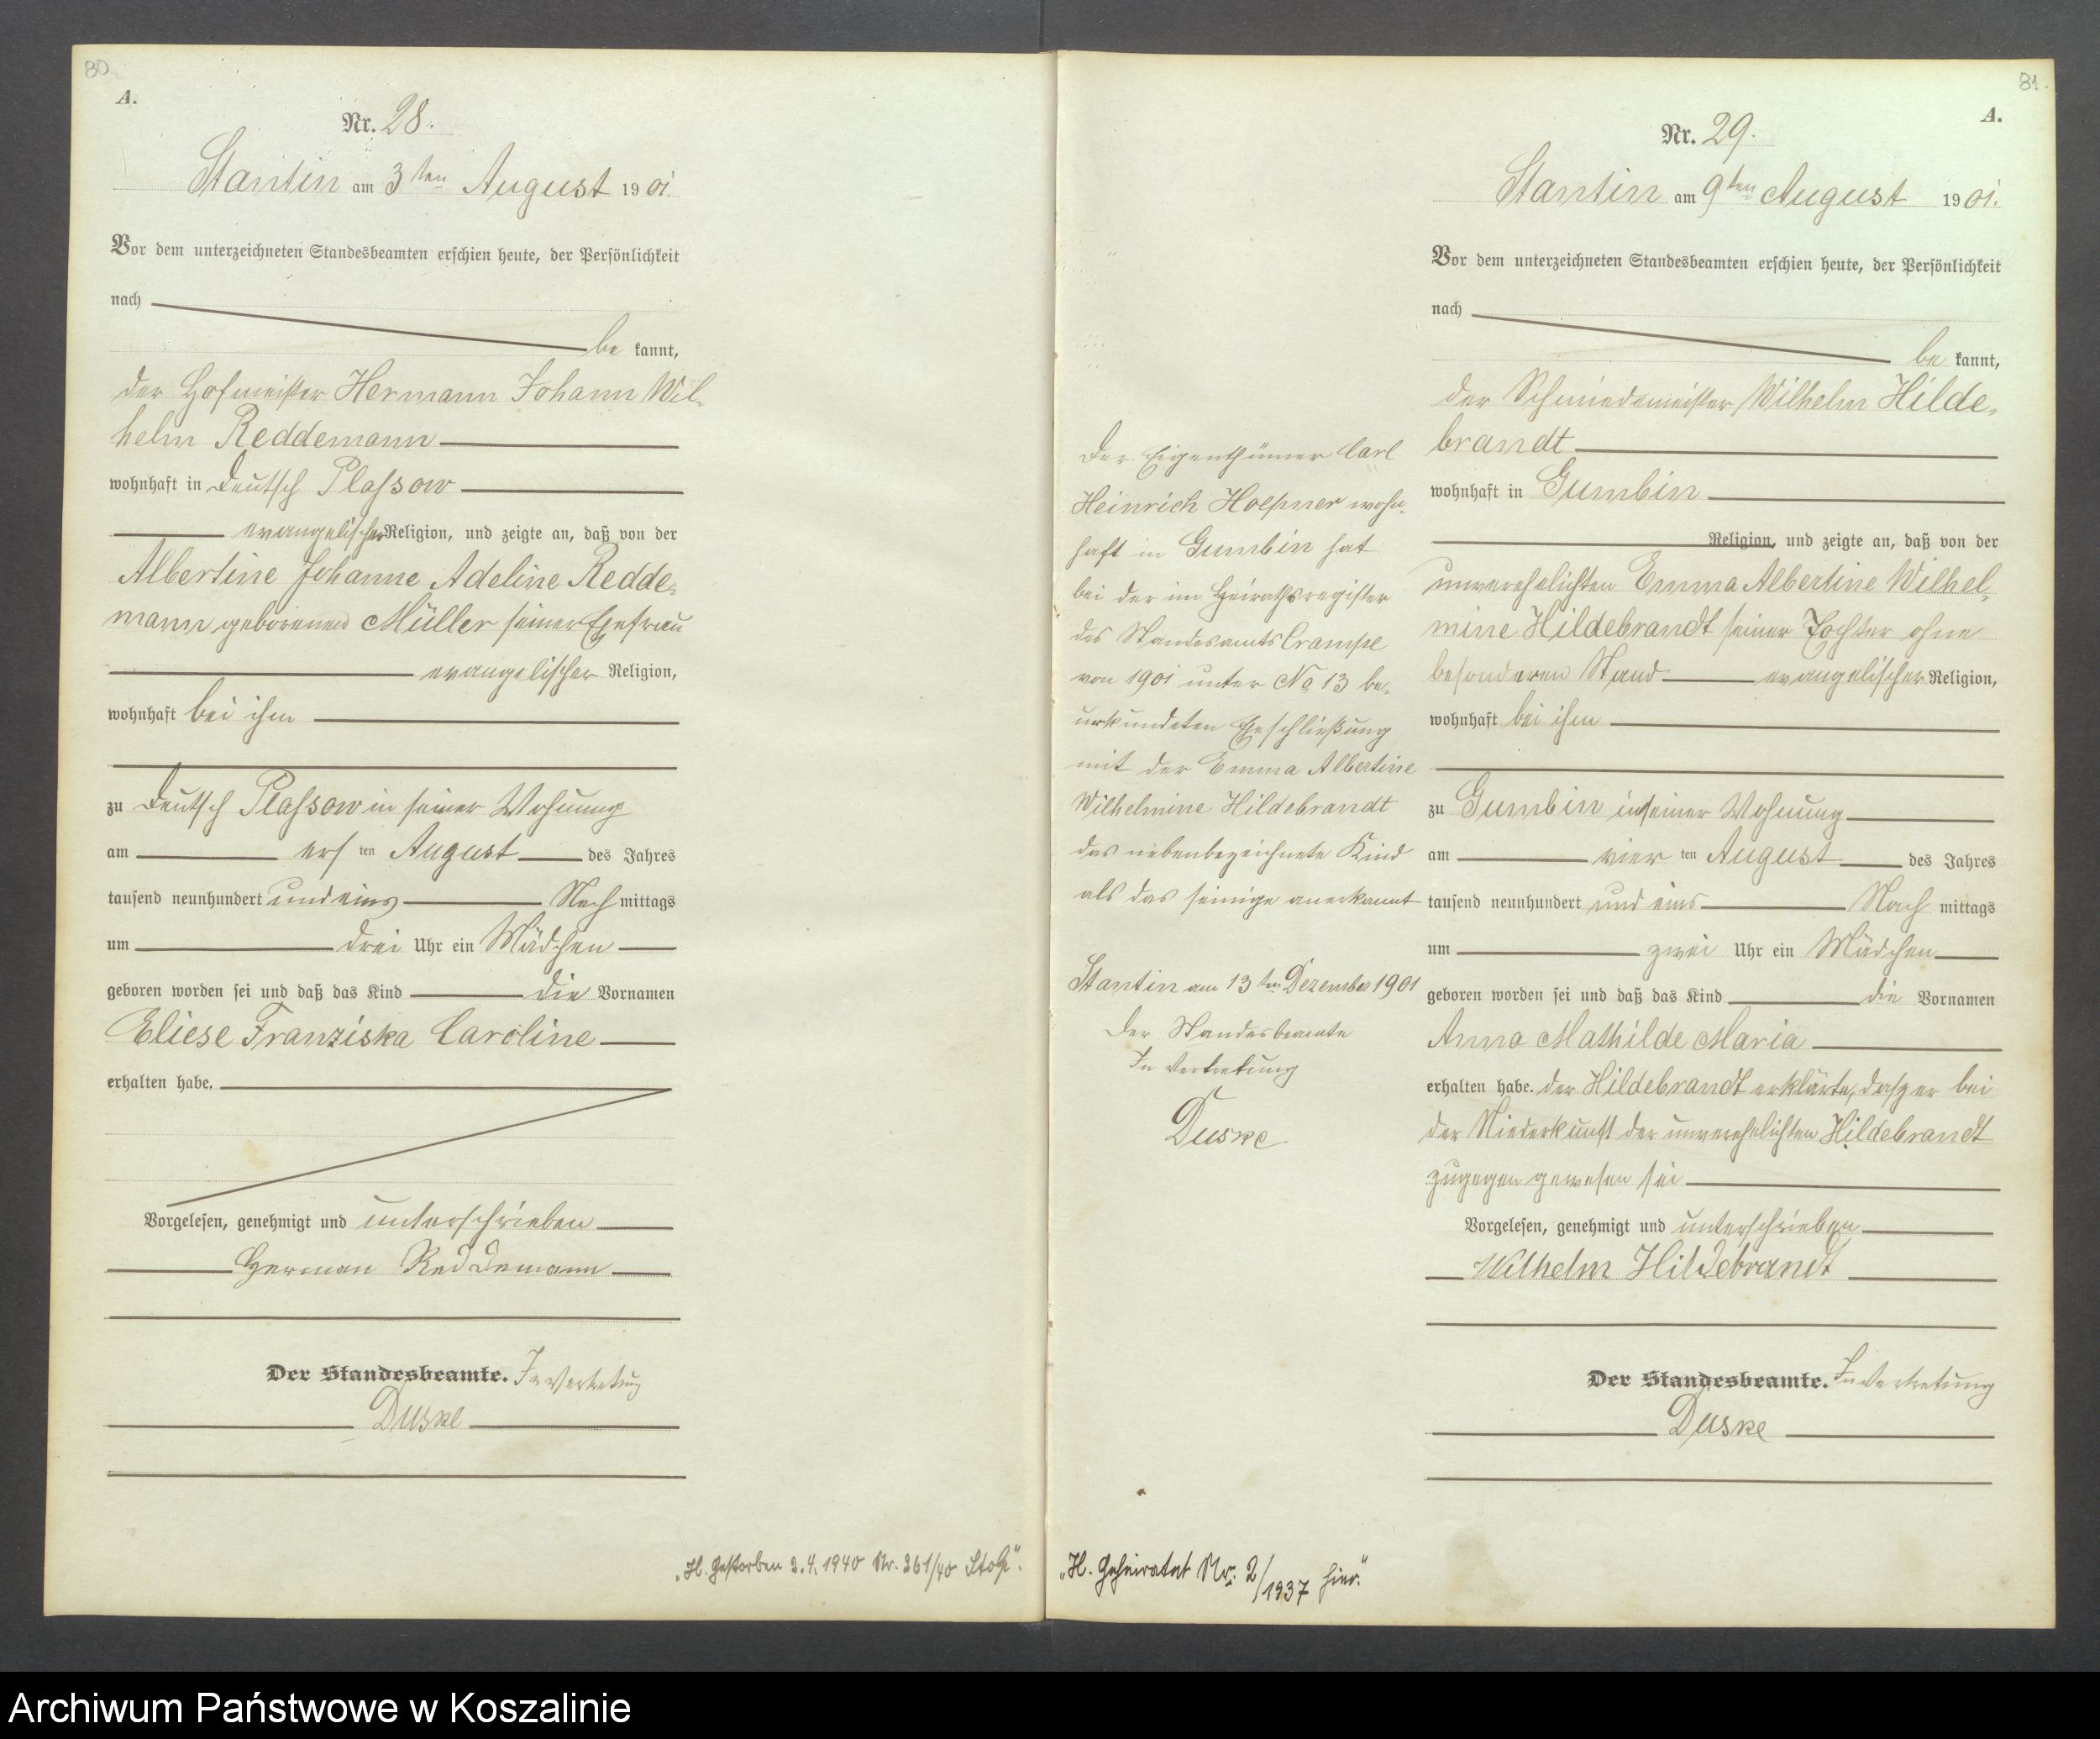 80
A.
Nr. 28.
Stantin am 3ten August 1901.
Vor dem unterzeichneten Standesbeamten erschien heute, der Persönlichkeit
nach
be kannt,
der Hofmeister Hermann Johann Wil-
helm Reddemann
wohnhaft in Deutsch Plassow
evangelischer Religion, und zeigte an, daß von der
Albertine Johanne Adeline Redde-
mann geborenen Müller seiner Ehefrau
evangelischer Religion,
wohnhaft bei ihm
zu Deutsch Plassow in seiner Wohnung
am ersten August des Jahres
tausend neunhundert und eins Nachmittags
um drei Uhr ein Mädchen
geboren worden sei und daß das Kind die Vornamen
Eliese Franziska Caroline
erhalten habe.
Vorgelesen, genehmigt und unterschrieben
Herman Reddemann
Der Standesbeamte. In Vertretung
Duske
„H. Gestorben 3.4.1940 Nr. 361/40 Stolp“.
81.
A.
Nr. 29.
Stantin am 9ten August 1901.
Vor dem unterzeichneten Standesbeamten erschien heute, der Persönlichkeit
nach
be kannt,
der Schmiedemeister Wilhelm Hilde-
brandt
wohnhaft in Gumbin
Religion, und zeigte an, daß von der
unverehelichten Emma Albertine Wilhel-
mine Hildebrandt seiner Tochter ohne
besonderen Stand evangelischer Religion,
wohnhaft bei ihm
zu Gumbin in seiner Wohnung
am vierten August des Jahres
tausend neunhundert und eins Nach mittags
um zwei Uhr ein Mädchen
geboren worden sei und daß das Kind die Vornamen
Anna Mathilde Maria
erhalten habe. der Hildebrandt erklärte, dass er bei
der Niederkunft der unverehelichten Hildebrandt
zugegen gewesen sei
Vorgelesen, genehmigt und unterschrieben
Wilhelm Hildebrandt
Der Standesbeamte. In Vertretung
Duske
Der Eigenthümer Carl
Heinrich Hoepner wohn-
haft in Gumbin hat
bei der im Heirathsregister
des Standesamts Crampe
von 1901 unter No 13 be-
urkundeten Eheschließung
mit der Emma Albertine
Wilhelmine Hildebrandt
das nebenbezeichnete Kind
als das seinige anerkannt
Stantin am 13ten Dezember 1901
Der Standesbeamte
In Vertretung
Duske
„H. Geheiratet Nr. 2/1937 hier.“
Archiwum Państwowe w Koszalinie